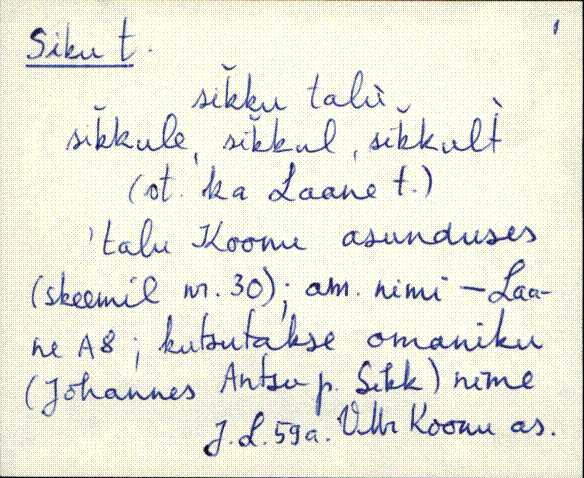 Siku t.
sik̆ku talù
sik̆kule, sik̆kul, sik̆kult̀
(ot. ka Laane t.)
'talu Koonu asunduses
(skeemil nr. 30); am. nimi – Laa-
ne A8; kutsutakse omaniku
(Johannes Antsu p. Sikk) nime
J. L. 59a. VMr Koonu as.